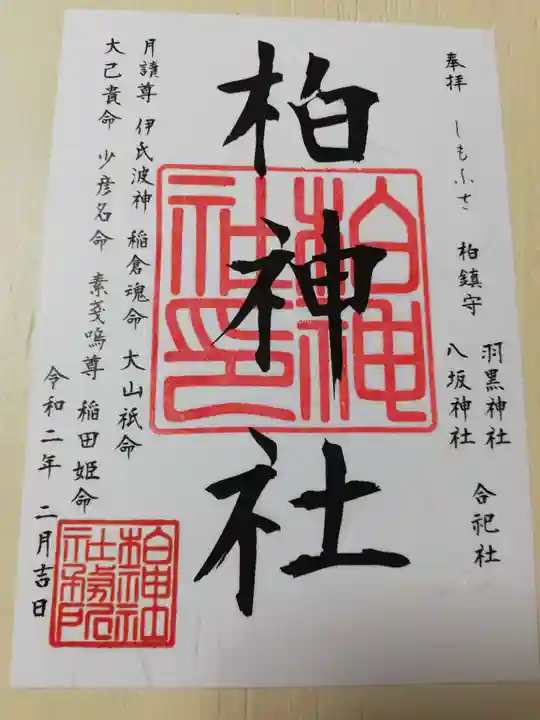 奉拝 しもふさ 柏鎮守
羽黒神社
八坂神社
合祀社
柏神社
柏神社印
月讀尊 伊氐波神 稲倉魂命 大山祇命
大己貴命 少彦名命 素戔嗚尊 稲田姫命
令和二年 二月吉日
柏神社社務所